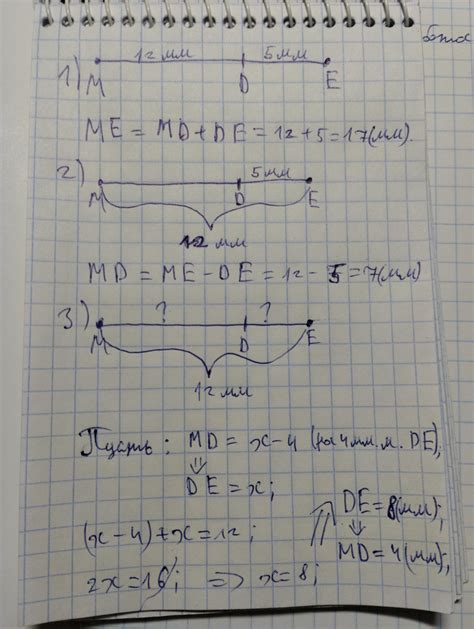 1) 12 мм 5 мм
M D E
ME = MD + DE = 12 + 5 = 17 (мм).
2) 5 мм
M D E
12 мм
MD = ME - DE = 12 - 5 = 7 (мм)
3) ? ?
M D E
12 мм
Пусть: MD = x - 4 (на 4 мм. м. DE);
⇓
DE = x;
(x - 4) + x = 12;
2x = 16; ⇒ x = 8;
⇒ DE = 8 (мм);
⇓
MD = 4 (мм);